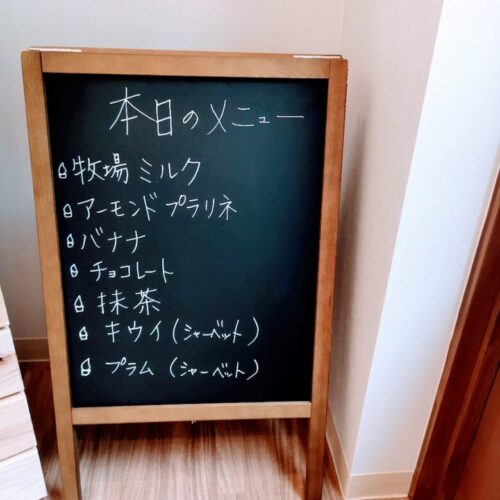 本日のメニュー
牧場ミルク
アーモンドプラリネ
バナナ
チョコレート
抹茶
キウイ(シャーベット)
プラム(シャーベット)